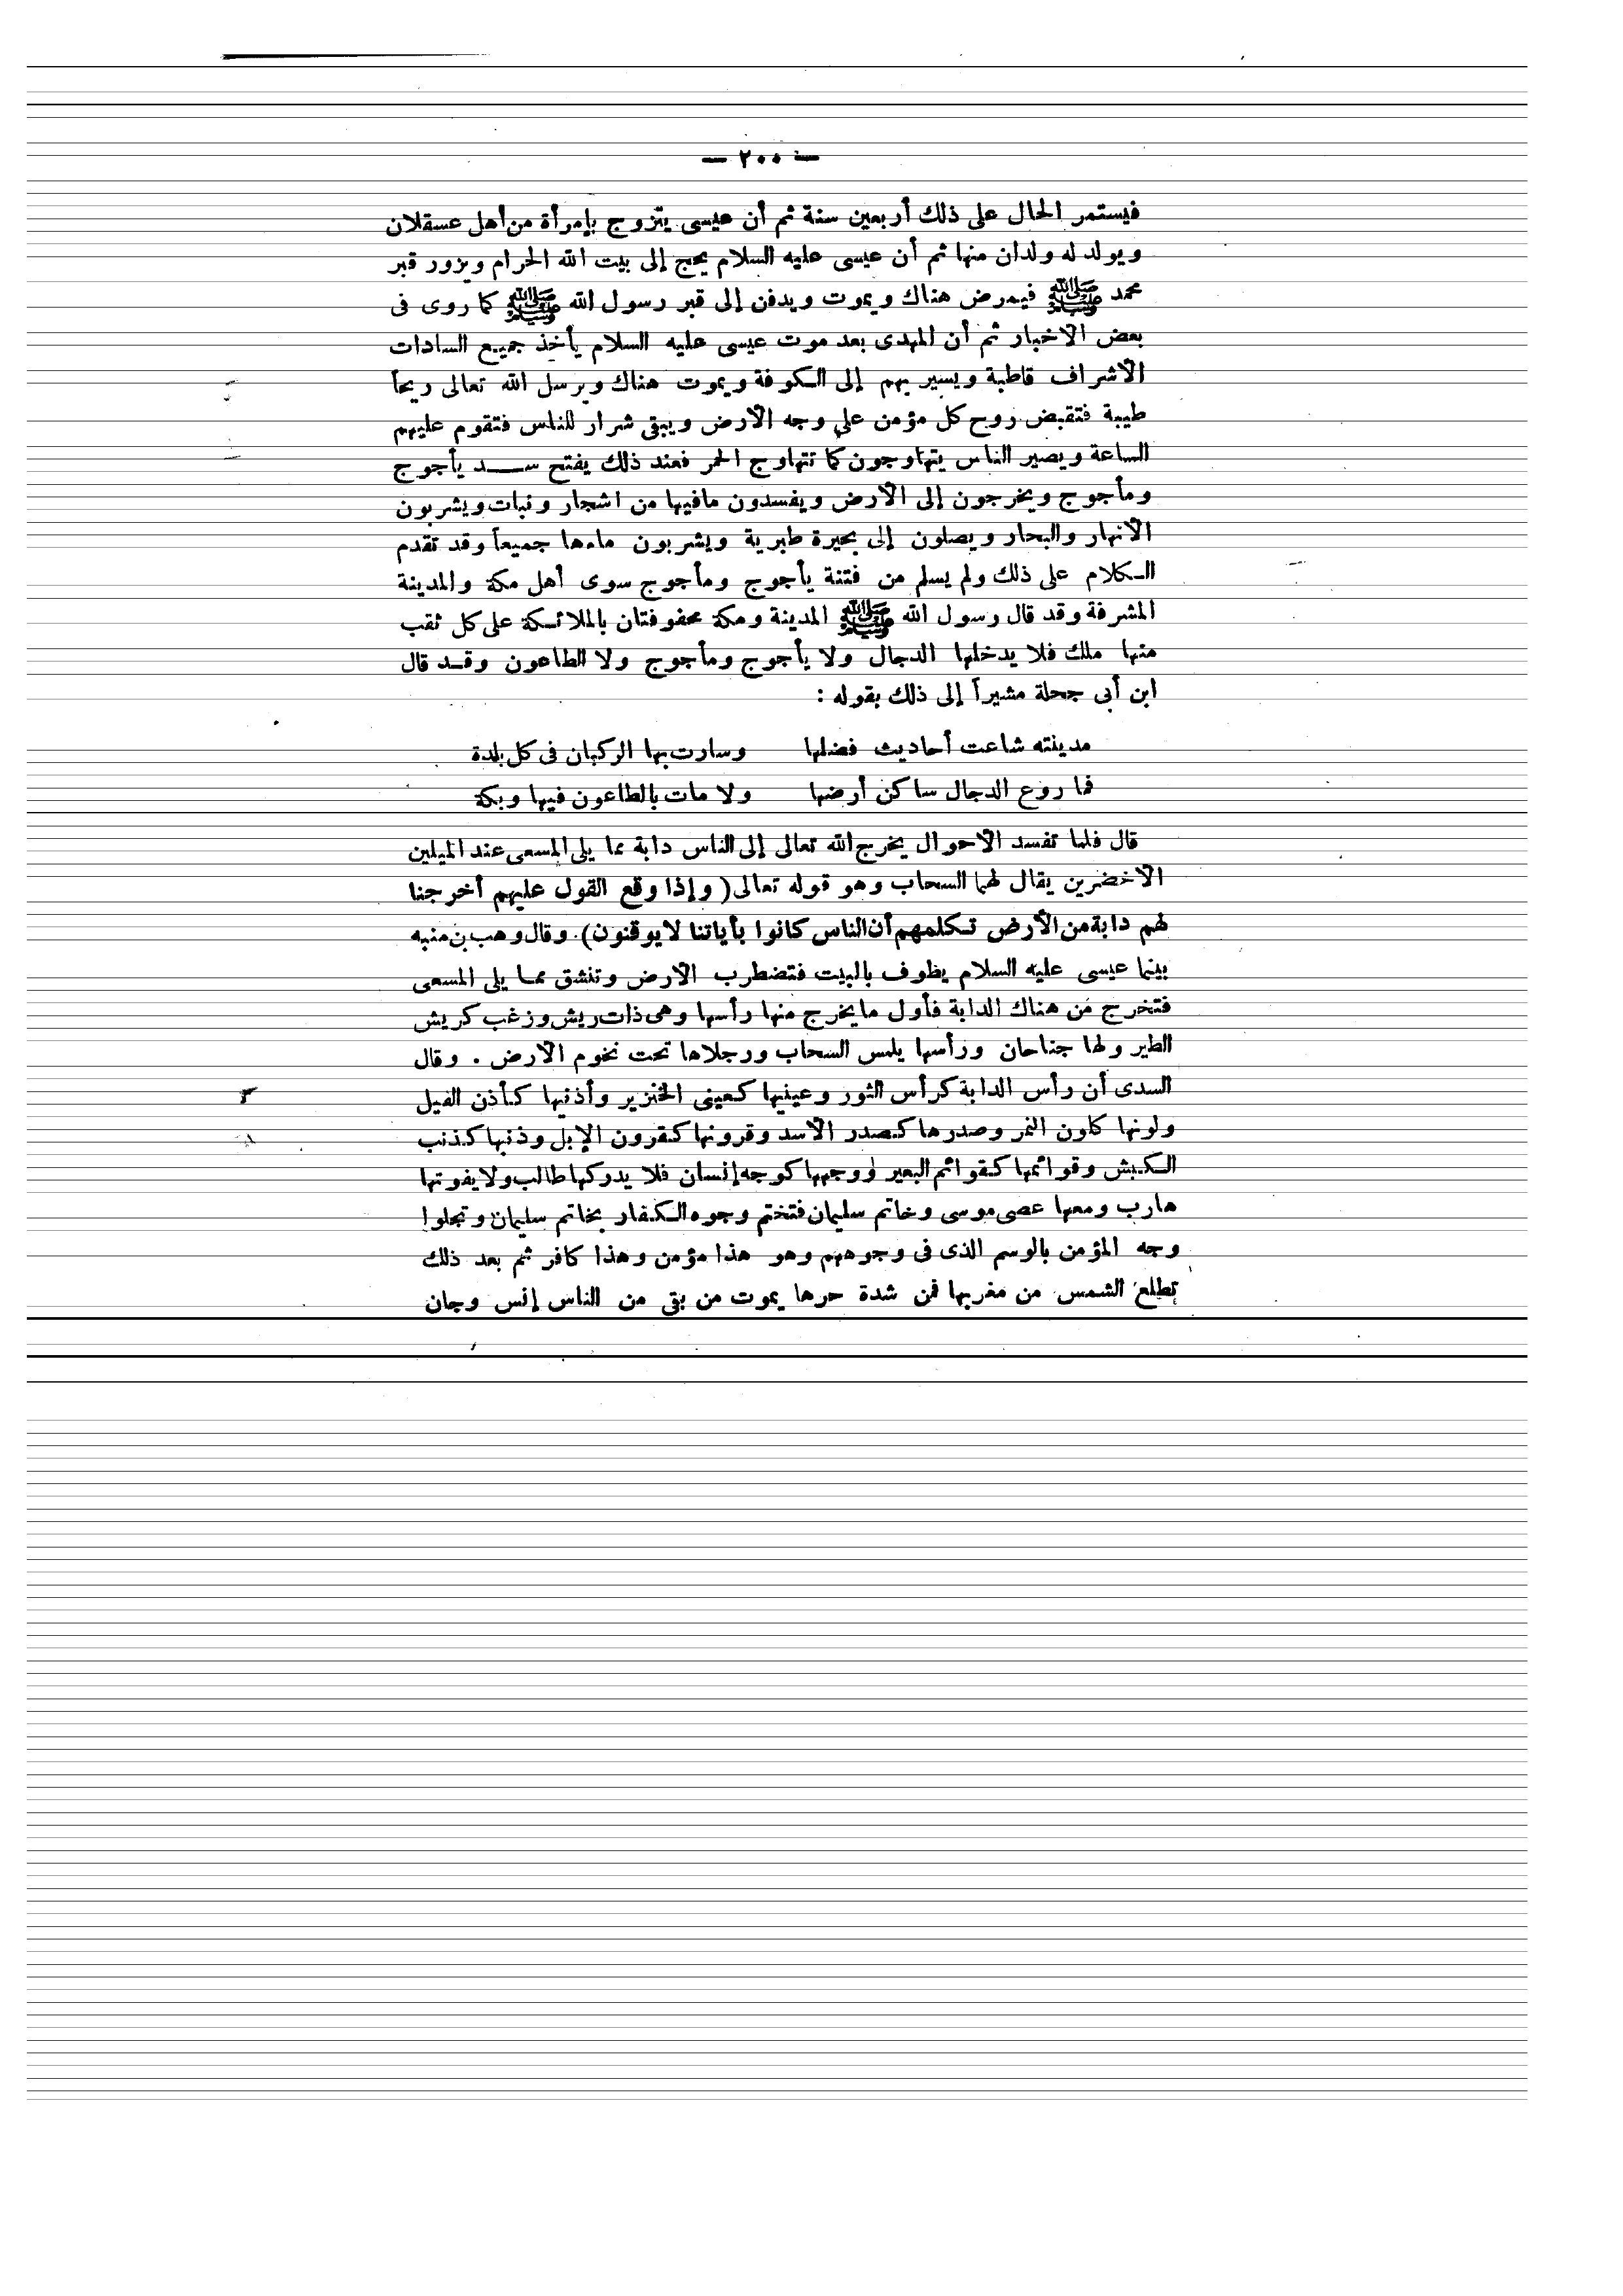 — ٢٠٠ —
فيستمر الحال على ذلك أربعين سنة ثم أن عيسى يتزوج بإمرأة من أهل عسقلان
ويولد له ولدان منها ثم أن عيسى عليه السلام يحج إلى بيت الله الحرام ويزور قبر
محمد ﷺ فيمرض هناك ويموت ويدفن إلى قبر رسول الله ﷺ كما روى فى
بعض الاخبار ثم أن المهدى بعد موت عيسى عليه السلام يأخذ جميع السادات
الاشراف قاطبة ويسير بهم إلى الكوفة ويموت هناك ويرسل الله تعالى ريحاً
طيبة فتقبض روح كل مؤمن على وجه الأرض ويبقى شرار للناس فتقوم عليهم
الساعة ويصير الناس يتهاوجون كما تتهاوج الحمر فعند ذلك يفتح ســد يأجوج
ومأجوج ويخرجون إلى الأرض ويفسدون مافيها من اشجار ونبات ويشربون
الانهار والبحار ويصلون إلى بحيرة طبرية ويشربون ماءها جميعاً وقد تقدم
الكلام على ذلك ولم يسلم من فتنة يأجوج ومأجوج سوى أهل مكة والمدينة
المشرفة وقد قال رسول الله ﷺ المدينة ومكة محفوفتان بالملائكة على كل ثقب
منها ملك فلا يدخلها الدجال ولا يأجوج ومأجوج ولا الطاعون وقد قال
ابن أبى جحلة مشيراً إلى ذلك بقوله :
مدينته شاعت أحاديث فضلها وسارت بها الركبان فى كل بلدة
فما روع الدجال ساكن أرضها ولا مات بالطاعون فيها وبكة
قال فلما تفسد الاحوال يخرج الله تعالى إلى الناس دابة مما يلى المسعى عند الميلين
الاخضرين يقال لهما السحاب وهو قوله تعالى ( وإذا وقع القول عليهم أخرجنا
لهم دابة من الأرض تكلمهم أن الناس كانوا بأياتنا لا يوقنون). وقال وهب بن منبه
بينما عيسى عليه السلام يطوف بالبيت فتضطرب الارض وتنشق مما يلى المسعى
فتخرج من هناك الدابة فأول ما يخرج منها رأسها وهى ذات ريش وزغب كريش
الطير ولها جناحان ورأسها يلمس السحاب ورجلاها تحت تخوم الارض . وقال
السدى أن رأس الدابة كرأس الثور وعينيها كعينى الخنزير وأذنيها كأذن الفيل
ولونها كلون النمر وصدرها كصدر الاسد وقرونها كقرون الإبل وذنبها كذنب
الكبش وقوائمها كقوائم البعير ووجهها كوجه إنسان فلا يدركها طالب ولا يفوتها
هارب ومعها عصى موسى وخاتم سليمان فتختم وجوه الكفار بخاتم سليمان وتجلوا
وجه المؤمن بالوسم الذى فى وجوههم وهو هذا مؤمن وهذا كافر ثم بعد ذلك
تطلع الشمس من مغربها فمن شدة حرها يموت من بقى من الناس إنس وجان